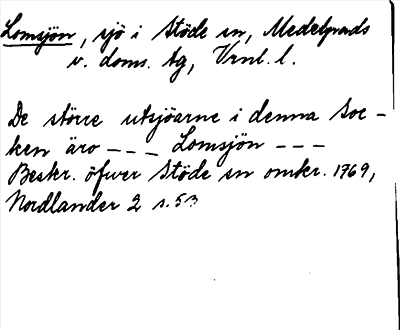 Lomsjön, sjö i Stöde sn, Medelpads
v. doms. tg, Vrnl. l.
De större utsjöarne i denna Soc-
ken äro --- Lomsjön ---
Beskr. öfwer Stöde sn omkr. 1769,
Nordlander 2 s. 53